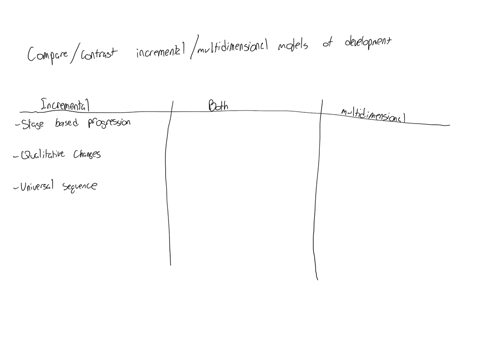 Compare/contrast incremental/multidimensional models of development
Incremental Both multidimensional
-Stage based progression
-Qualitative Changes
-Universal sequence